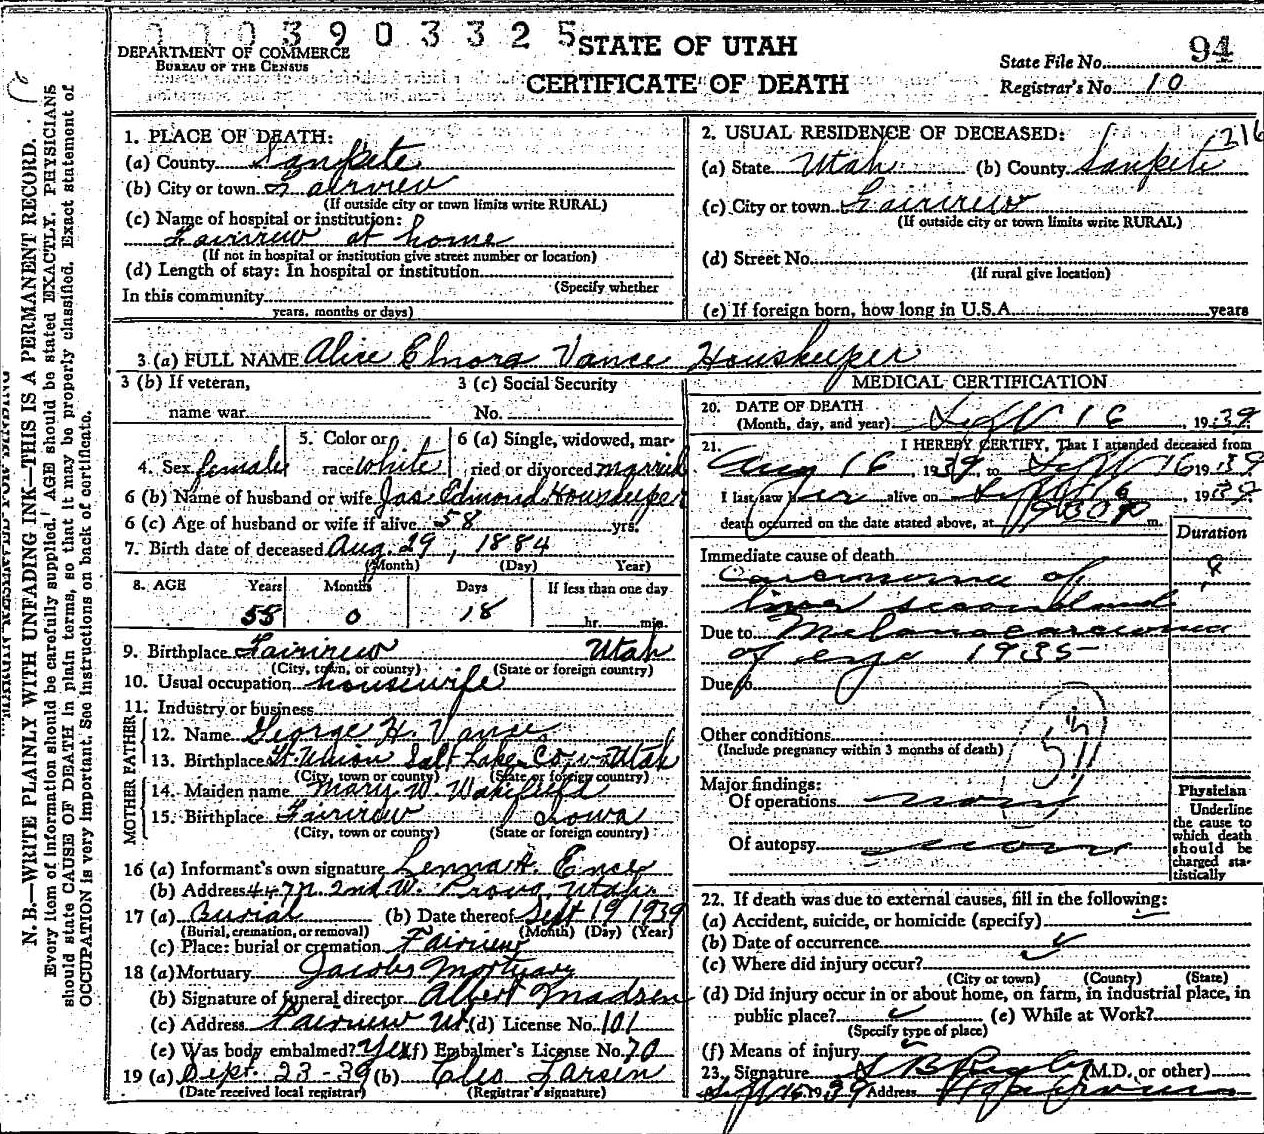 000390 3325
STATE OF UTAH
CERTIFICATE OF DEATH
DEPARTMENT OF COMMERCE
BUREAU OF THE CENSUS
State File No. 94
Registrar's No. 10
N. B.—WRITE PLAINLY WITH UNFADING INK—THIS IS A PERMANENT RECORD.
Every item of information should be carefully supplied. AGE should be stated EXACTLY. PHYSICIANS
should state CAUSE OF DEATH in plain terms, so that it may be properly classified. Exact statement of
OCCUPATION is very important. See instructions on back of certificate.
1. PLACE OF DEATH:
(a) County Sanpete
(b) City or town Fairview
(If outside city or town limits write RURAL)
(c) Name of hospital or institution:
Fairview at home
(If not in hospital or institution give street number or location)
(d) Length of stay: In hospital or institution
(Specify whether
In this community
years, months or days)
2. USUAL RESIDENCE OF DECEASED: 216
(a) State Utah (b) County Sanpete
(c) City or town Fairview
(If outside city or town limits write RURAL)
(d) Street No.
(If rural give location)
(e) If foreign born, how long in U.S.A. years
3 (a) FULL NAME Alice Elnora Vance Houskeeper
3 (b) If veteran,
name war
3 (c) Social Security
No.
4. Sex female
5. Color or
race white
6 (a) Single, widowed, mar-
ried or divorced married
6 (b) Name of husband or wife Jas. Edmond Houskeeper
6 (c) Age of husband or wife if alive 58 yrs.
7. Birth date of deceased Aug. 29, 1884
(Month) (Day) Year)
8. AGE Years Months Days If less than one day
55 0 18 hr. min.
9. Birthplace Fairview Utah
(City, town, or county) (State or foreign country)
10. Usual occupation housewife
11. Industry or business
FATHER
12. Name George H. Vance
13. Birthplace Ft. Union Salt Lake Co. Utah
(City, town or county) (State or foreign country)
MOTHER
14. Maiden name Mary W. Wakefield
15. Birthplace Fairview Iowa
(City, town or county) (State or foreign country)
16 (a) Informant's own signature Lenna
(b) Address 447 N. 2nd W. Provo, Utah
17 (a) Burial (b) Date thereof Sept 19 1939
(Burial, cremation, or removal) (Month) (Day) (Year)
(c) Place: burial or cremation Fairview
18 (a) Mortuary Jacobs Mortuary
(b) Signature of funeral director Albert Madsen
(c) Address Fairview Ut. (d) License No. 101
(e) Was body embalmed? Yes (f) Embalmer's License No. 70
19 (a) Sept. 23-39 (b) Cleo Larsen
(Date received local registrar) (Registrar's signature)
MEDICAL CERTIFICATION
20. DATE OF DEATH
(Month, day, and year) Sept 16, 1939
21. I HEREBY CERTIFY, That I attended deceased from
Aug 16, 1939 to Sept 16 1939
I last saw her alive on Sept 16, 1939
death occurred on the date stated above, at 930 P m.
Duration
Immediate cause of death
Carcinoma of ?
liver secondary
Due to Melanocarcinoma
of eye 1935
Due to
Other conditions
(Include pregnancy within 3 months of death)
Major findings:
Of operations none
Of autopsy none
Physician
Underline
the cause to
which death
should be
charged sta-
tistically
22. If death was due to external causes, fill in the following:
(a) Accident, suicide, or homicide (specify)
(b) Date of occurrence
(c) Where did injury occur?
(City or town) (County) (State)
(d) Did injury occur in or about home, on farm, in industrial place, in
public place? (e) While at Work?
(Specify type of place)
(f) Means of injury
23. Signature (M.D. or other)
Sept 16 1939 Address